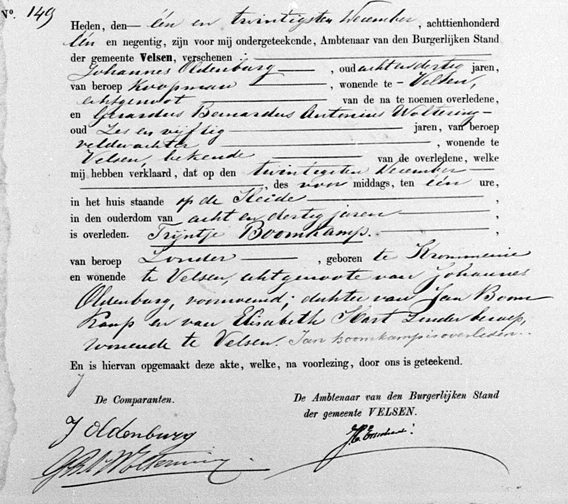 No. 149
Heden, den één en twintigsten December, achttienhonderd
één en negentig, zijn voor mij ondergeteekende, Ambtenaar van den Burgerlijken Stand
der gemeente Velsen, verschenen:
Johannes Oldenburg, oud acht en dertig jaren,
van beroep Koopman, wonende te Velsen,
echtgenoot van de na te noemen overledene,
en Gerardus Bernardus Antonius Woltering
oud Zes en vijftig jaren, van beroep
veldwachter, wonende te
Velsen, bekende van de overledene, welke
mij hebben verklaard, dat op den twintigsten December
, des voor middags, ten één ure,
in het huis staande op de Heide,
in den ouderdom van acht en dertig jaren,
is overleden. Trijntje Boomkamp.
van beroep Zonder, geboren te Krommenie
en wonende te Velsen, echtgenoote van Johannes
Oldenburg, voornoemd; dochter van Jan Boom
Kamp en van Elisabeth Zonder beroep,
wonende te Velsen. Jan Boomkamp is overleden.
En is hiervan opgemaakt deze akte, welke, na voorlezing, door ons is geteekend.
De Comparanten.
De Ambtenaar van den Burgerlijken Stand
der gemeente VELSEN.
J Oldenburg
G.B.A. Woltering